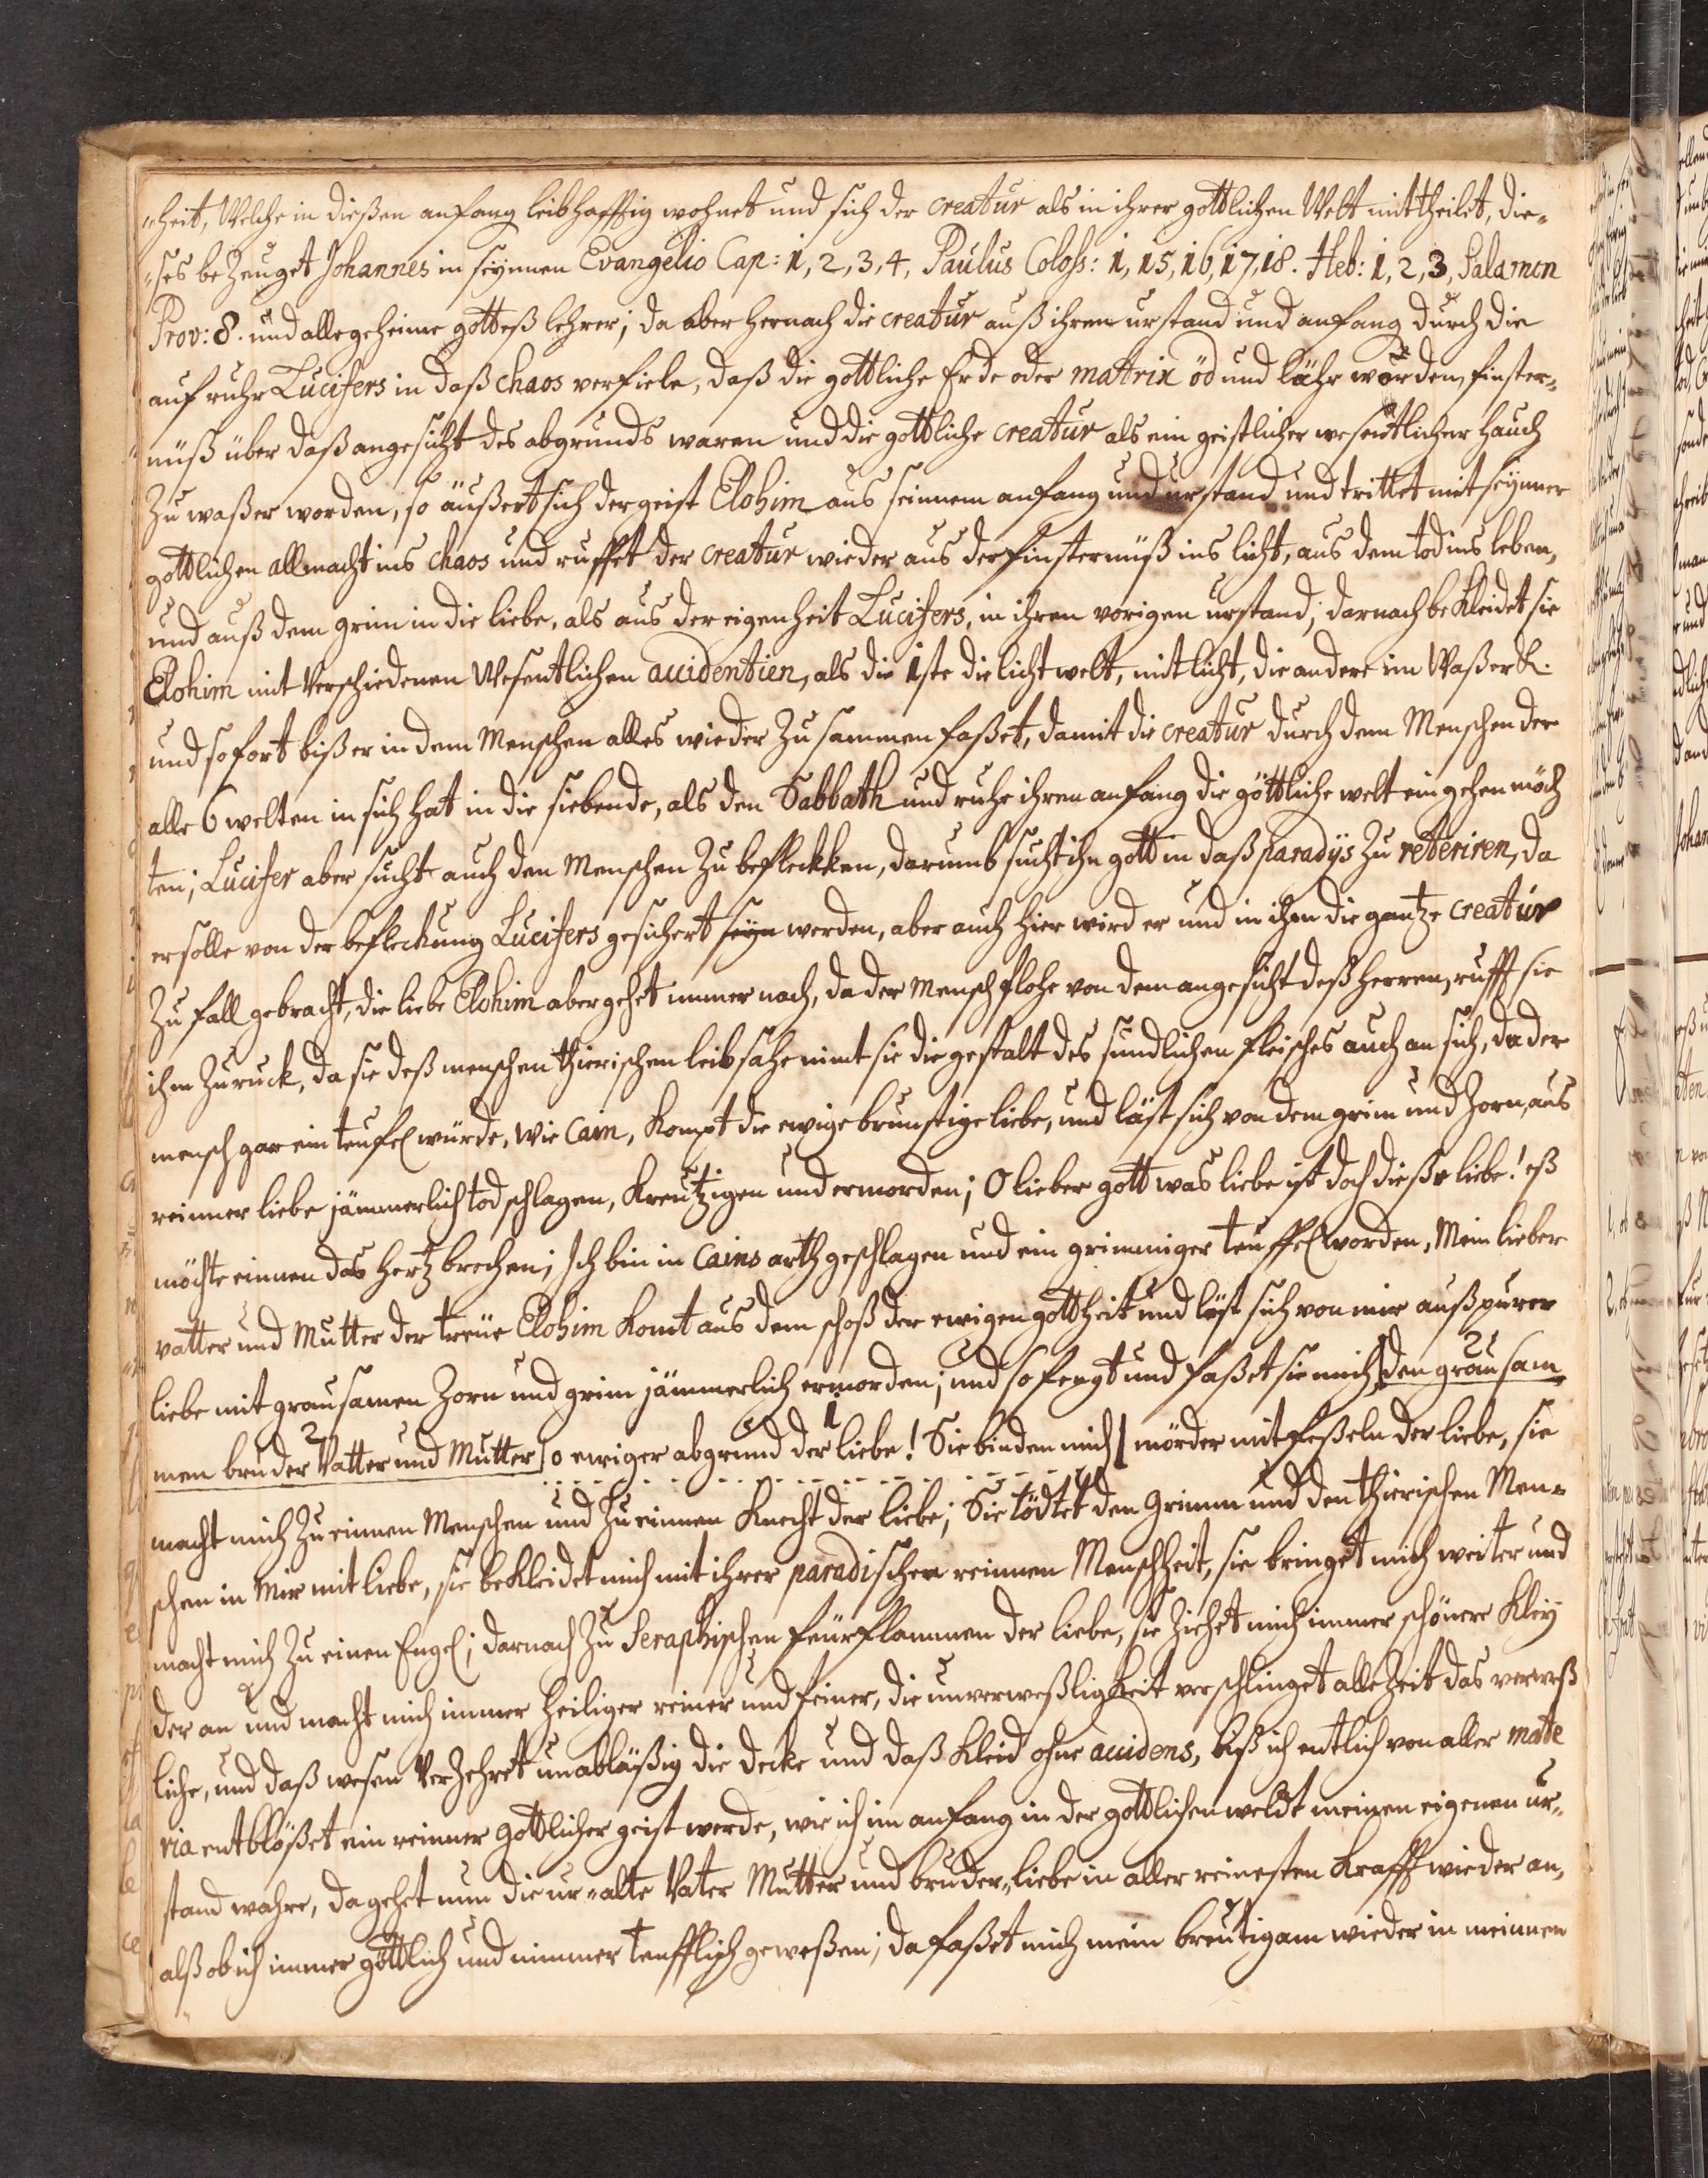 -heit, Welche in dießen anfang leibhafftig wohnet und sich der creatur als in ihrer gottlichen Welt mittheilet, die-
-ses bezeuget Johannes in seynnen Evangelio Cap: 1, 2, 3, 4, Paulus Coloss: 1, 15, 16, 17, 18. Heb: 1, 2, 3, Salamon
Prov: 8. und alle geheime gotteß lehrer; da aber hernach die creatur auß ihrem urstand und anfang durch die
auf ruhr Lucifers in daß chaos verfiele, daß die gottliche Erde oder matrix öd und lähr worden, finster-
nüß über daß angesicht des abgrunds waren und die gottliche creatur als ein geistlicher wesentlicher hauch
Zu waßer worden, so äußert sich der geist Elohim aus seinnem anfang und urstand und trittet mit seynner
gottlichen allmacht ins chaos und ruffet der creatur wieder aus der finsternüß ins licht, aus dem tod ins leben,
und auß dem grim in die liebe, als aus der eigenheit Lucifers, in ihren vorigen urstand; darnach bekleidet sie
Elohim mit Verschiedenen Wesentlichen accidentien, als die 1ste die lichtwelt, mit licht, die andere im Waßer &.
und so fort biß er in dem Menschen alles wieder Zusammen faßet, damit die creatur durch dem Menschen der
alle 6 welten in sich hat in die siebende, als den Sabbath und ruhe ihren anfang die göttliche welt eingehen möch
ten; Lucifer aber sucht auch den Menschen Zu befleckken, darumb sucht ihn gott in daß paradÿs Zu reteriren, da
er solle von der befleckung Lucifers gesichert seyn werden, aber auch hier wird er und in ihm die gantze creatur
Zu fall gebracht, die liebe Elohim aber gehet immer nach, da der Mensch flohe von dem angesicht deß herren, rufft sie
ihm Zuruck, da sie deß menschen thierischen leib sahe nimt sie die gestalt des sündlichen fleisches auch an sich, da der
mensch gar ein teufel würde, wie Cain, Kompt die ewige brunstige liebe, und läst sich von dem grim und Zorn, aus
reinner liebe jämmerlich tod schlagen, Kreutzigen und ermorden; O lieber gott was liebe ist doch dieße liebe! eß
möchte einnen das hertz brechen; Ich bin in Cains arth geschlagen und ein grimmiger teuffel worden, Mein lieber
vatter und Mutter der treue Elohim Komt aus dem schoß der ewigen gottheit und läst sich von mir auß purer
liebe mit grausamen Zorn und grim jämmerlich ermorden; und so fengt und faßet sie mich den grausam 2
men bruder Vatter und Mutter 2 o ewiger abgrund der liebe! 1 Sie binden mich mörder mit feßeln der liebe, sie
macht mich Zu einnen Menschen und Zu einnen Knecht der liebe; Sie tödtet den Grimm und den thierischen Men-
schen in Mir mit liebe, sie bekleidet mich mit ihrer paradischen reinnen Menschheit, sie bringet mich weiter und
macht mich Zu einen Engel; darnach Zu Seraphischen feürflammen der liebe, sie Ziehet mich immer schönere Kley
der an und macht mich immer heiliger reiner und feiner, die unverweßligkeit verschlinget alle Zeit das verweß
liche, und daß wesen VerZehret unabläßig die decke und daß Kleid ohne accidens, biß ich entlich von aller mate
ria entblößet ein reinner gottlicher geist werde, wie ich im anfang in der gottlichen weldt meinen eigenen ur-
stand wahre, da gehet nun die ur-alte Vater Mutter und bruder-liebe in aller reinesten Krafft wieder an,
alß ob ich immer göttlich und nimmer teufflisch geweßen; da faßet mich mein breutigam wieder in meinnen